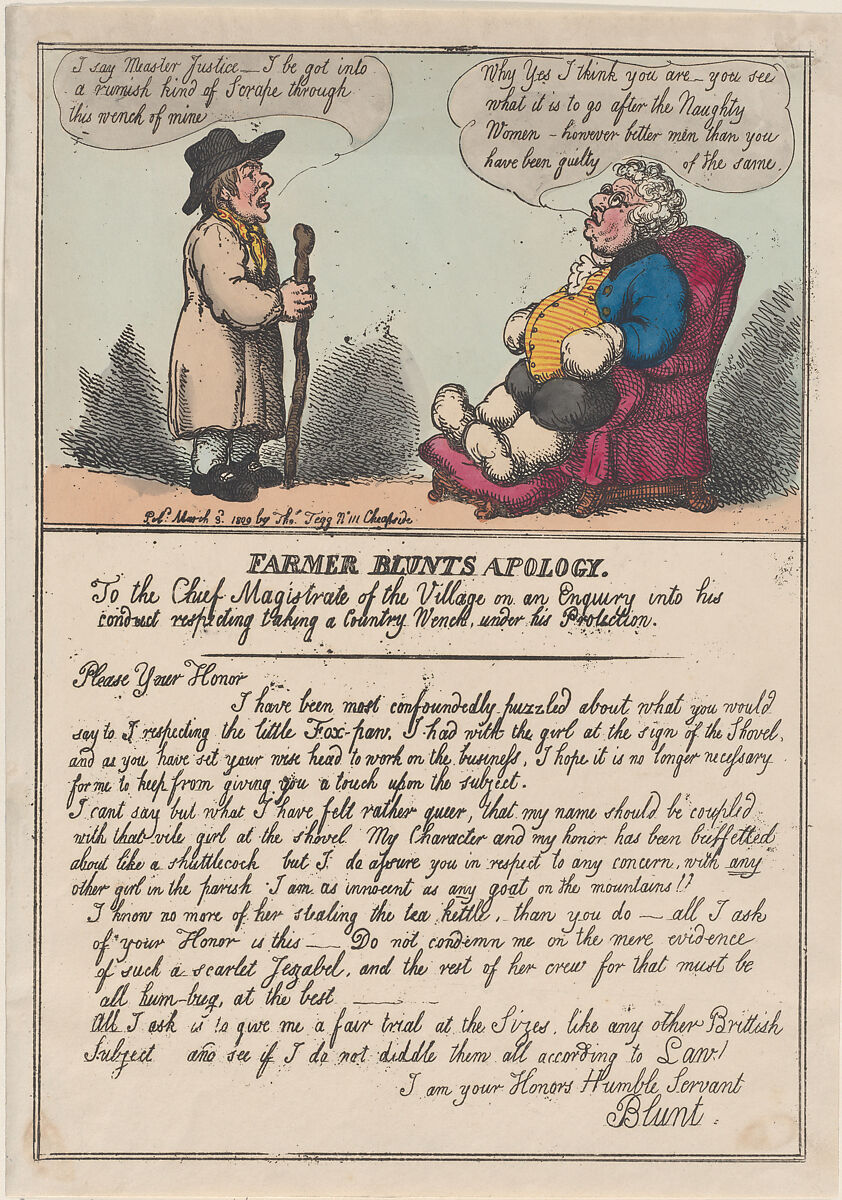 I say Measter Justice — I be got into
a rumish kind of Scrape through
this wench of mine
Why Yes I think you are — you see
what it is to go after the Naughty
Women — however better men than you
have been guilty of the same.
Pubd. March 3d. 1809 by Thos. Tegg No 111 Cheapside
FARMER BLUNTS APOLOGY.
To the Chief Magistrate of the Village on an Enquiry into his
conduct respecting taking a Country Wench, under his Protection.
Please Your Honor
I have been most confoundedly puzzled about what you would
say to I respecting the little Fox-paw, I had with the girl at the sign of the Shovel,
and as you have set your wise head to work on the business, I hope it is no longer necessary
for me to keep from giving you a touch upon the subject.
I cant say but what I have felt rather queer, that my name should be coupled
with that vile girl at the shovel My Character and my honor has been buffetted
about like a shuttlecock but I do assure you in respect to any concern, with any
other girl in the parish I am as innocent as any goat on the mountains!!
I know no more of her stealing the tea kettle, than you do — all I ask
of your Honor is this — Do not condemn me on the mere evidence
of such a scarlet Jezabel, and the rest of her crew for that must be
all hum-bug, at the best —
All I ask is to give me a fair trial at the Sizes, like any other Brittish
Subject and see if I do not diddle them all according to Law!
I am your Honors Humble Servant
Blunt.